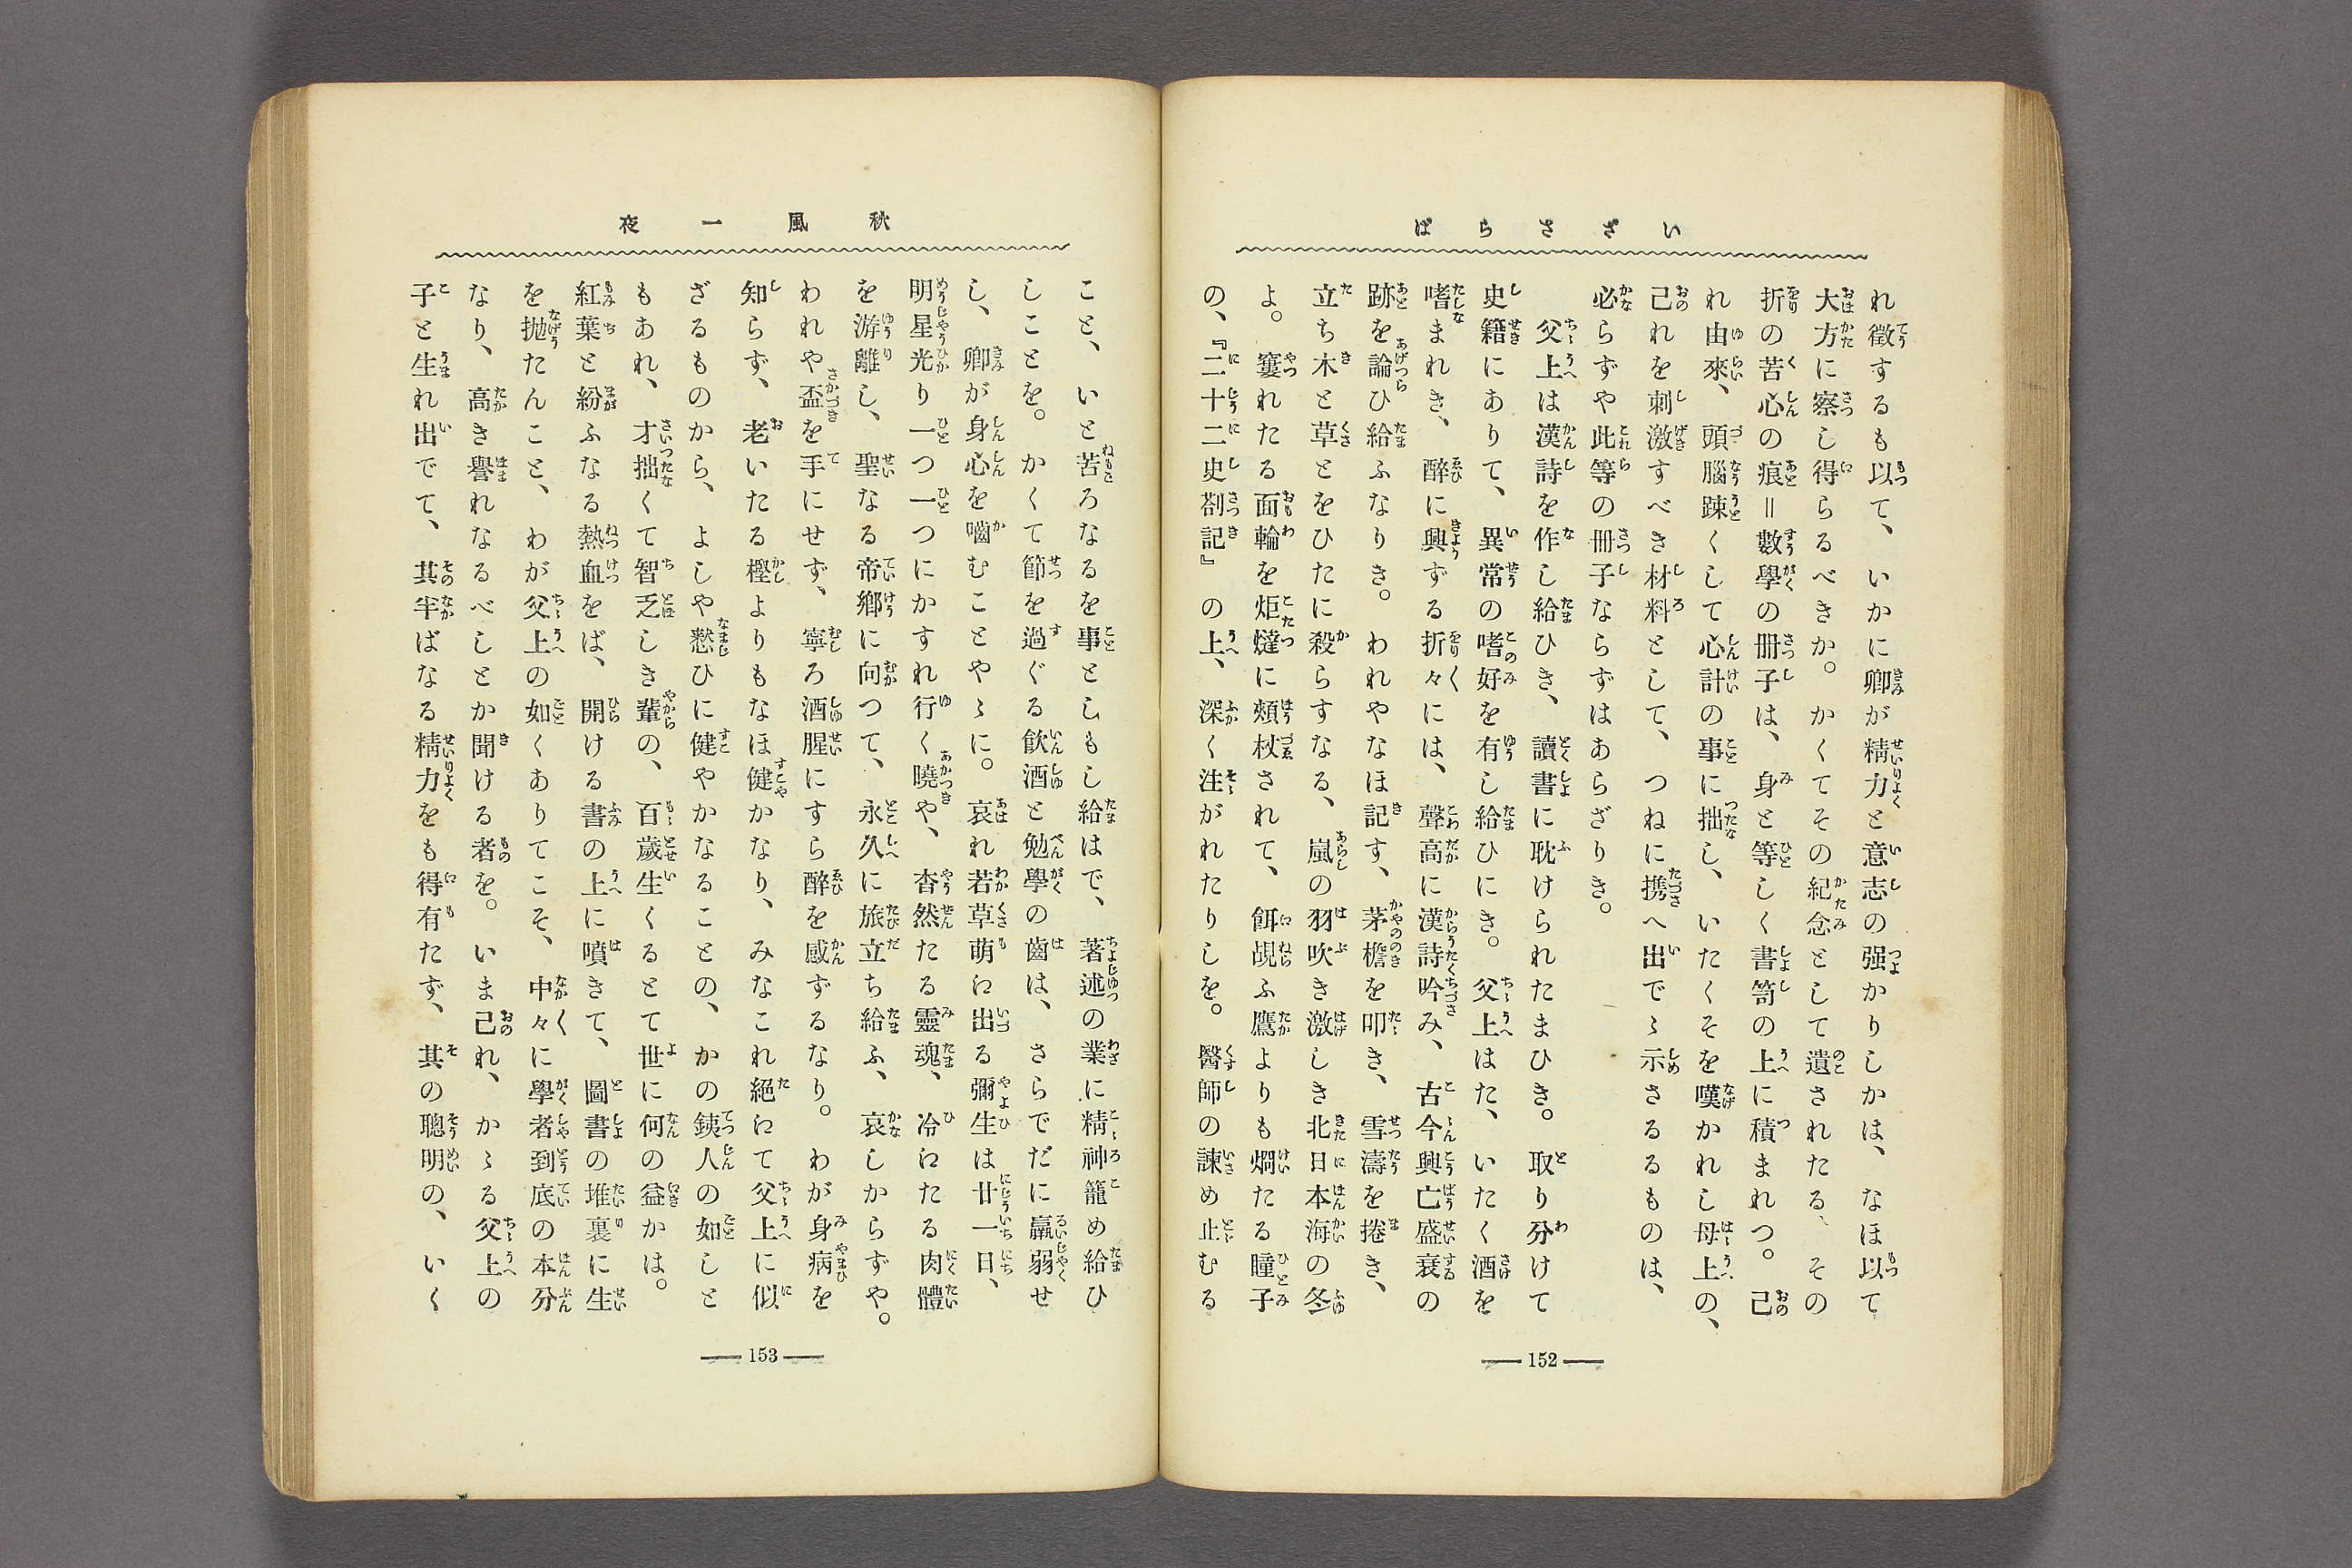 いざさらば
れ徴するも以て、いかに卿が精力と意志の强かりしかは、なほ以て
大方に察し得らるべきか。かくてその紀念として遺されたる、その
折の苦心の痕＝數學の冊子は、身と等しく書笥の上に積まれつ。己
れ由來、頭腦踈くして心計の事に拙し、いたくそを嘆かれし母上の、
己れを刺激すべき材料として、つねに携へ出でゝ示さるるものは、
必らずや此等の冊子ならずはあらざりき。
父上は漢詩を作し給ひき、讀書に耽けられたまひき。取り分けて
史籍にありて、異常の嗜好を有し給ひにき。父上はた、いたく酒を
嗜まれき、醉に興ずる折々には、聲高に漢詩吟み、古今興亡盛衰の
跡を論ひ給ふなりき。われやなほ記す、茅檐を叩き、雪濤を捲き、
立ち木と草とをひたに殺らすなる、嵐の羽吹き激しき北日本海の冬
よ。窶れたる面輪を炬燵に頰杖されて、餌覘ふ鷹よりも烱たる瞳子
の、『二十二史剳記』の上、深く注がれたりしを。醫師の諫め止むる
152
秋風一夜
こと、いと苦ろなるを事としもし給はで、著述の業に精神籠め給ひ
しことを。かくて節を過ぐる飮酒と勉學の齒は、さらでだに羸弱せ
し、卿が身心を嚙むことやゝに。哀れ若草萌ﾛ出る彌生は廿一日、
明星光り一つ一つにかすれ行く曉や、杳然たる靈魂、冷ﾛたる肉體
を游離し、聖なる帝鄕に向つて、永久に旅立ち給ふ、哀しからずや。
われや盃を手にせず、寧ろ酒腥にすら醉を感ずるなり。わが身病を
知らず、老いたる樫よりもなほ健かなり、みなこれ絕ﾛて父上に似
ざるものから、よしや憖ひに健やかなることの、かの銕人の如しと
もあれ、才拙くて智乏しき輩の、百歲生くるとて世に何の益かは。
紅葉と紛ふなる熱血をば、開ける書の上に噴きて、圖書の堆裏に生
を抛たんこと、わが父上の如くありてこそ、中々に學者到底の本分
なり、高き譽れなるべしとか聞ける者を。いま己れ、かゝる父上の
子と生れ出でて、其半ばなる精力をも得有たず、其の聰明の、いく
153